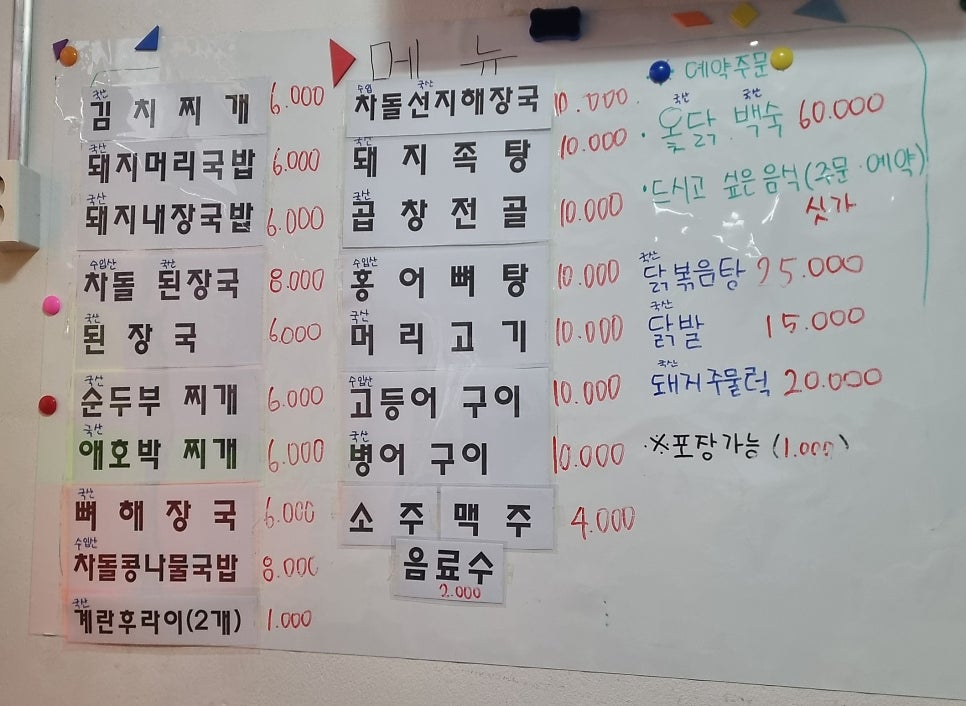 메 뉴
국산
김 치 찌 개 6.000
국산
돼지머리국밥 6.000
국산
돼지내장국밥 6.000
수입산 국산
차돌 된장국 8.000
국산
된 장 국 6.000
국산
순두부 찌개 6.000
국산
애호박 찌개 6.000
국산
뼈 해 장 국 6.000
수입산
차돌콩나물국밥 8.000
국산
계란후라이(2개) 1.000
수입 국산
차돌선지해장국 10.000
국산
돼 지 족 탕 10.000
국산
곱 창 전 골 10.000
수입산
홍 어 뼈 탕 10.000
국산
머 리 고 기 10.000
수입산
고등어 구이 10.000
국산
병어 구이 10.000
소 주 맥 주 4.000
음료수
2.000
· 예약주문
국산 국산
· 옻닭 백숙 60.000
· 드시고 싶은음식(주문·예약)
싯가
국산
닭볶음탕 25.000
국산
닭발 15.000
국산
돼지주물럭 20.000
·※포장가능 (1.000)